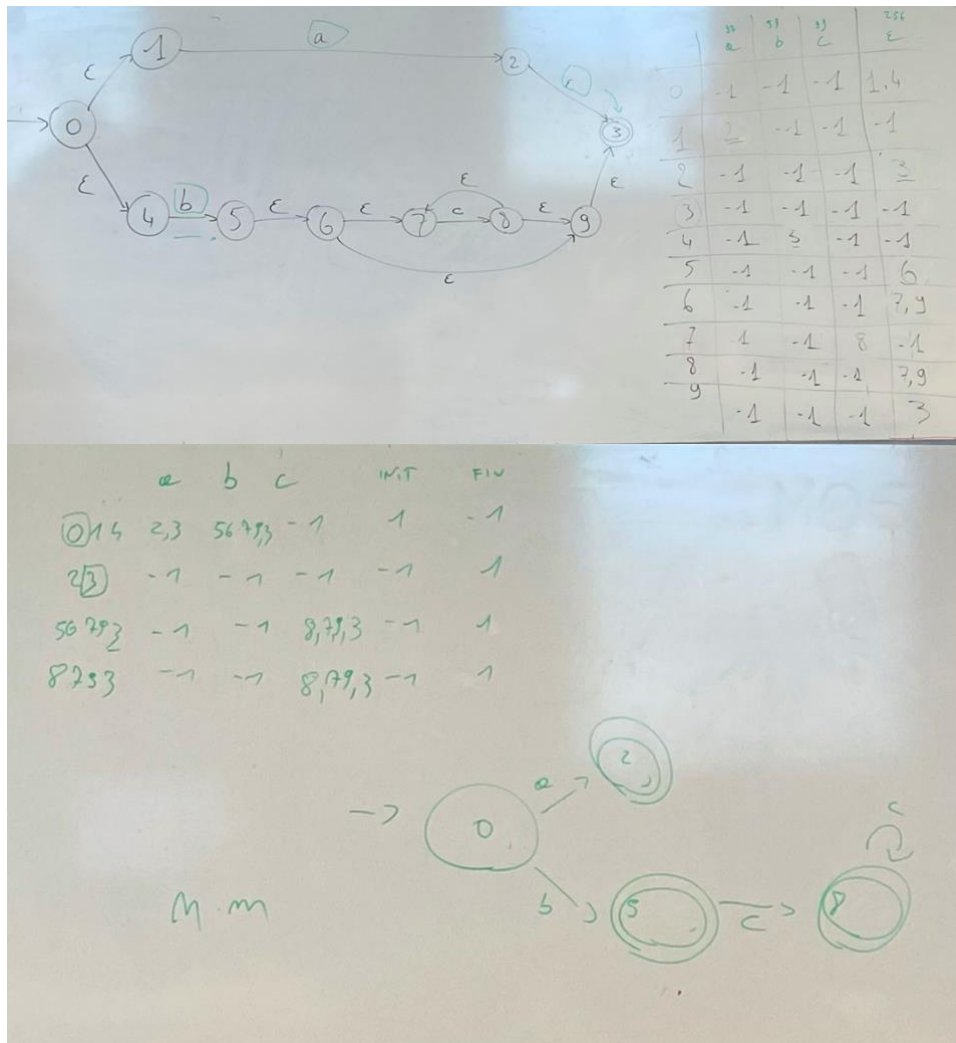 1 a 2
ε ε
0 3
ε ε
4 b 5 ε 6 ε 7 c 8 ε 9
ε
ε
256
a b c ε
0 -1 -1 -1 1,4
1 2 -1 -1 -1
2 -1 -1 -1 3
3 -1 -1 -1 -1
4 -1 5 -1 -1
5 -1 -1 -1 6
6 -1 -1 -1 7,9
7 1 -1 8 -1
8 -1 -1 -1 7,9
9
-1 -1 -1 3
a b c INIT FIN
014 2,3 5679,3 -1 1 -1
23 -1 -1 -1 -1 1
56793 -1 -1 8,79,3 -1 1
8793 -1 -1 8,79,3 -1 1
2
a
0
c
b 5 c 8